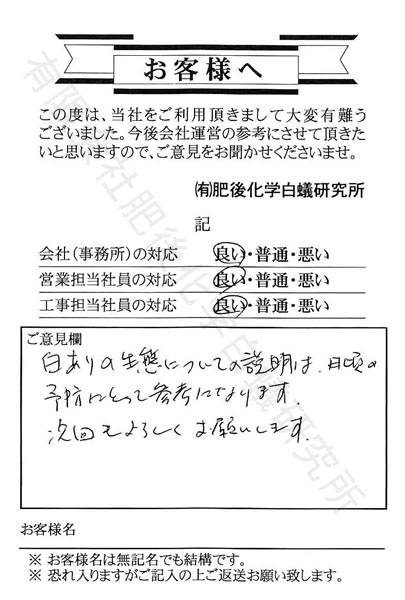 お客様へ
この度は、当社をご利用頂きまして大変有難う
ございました。今後会社運営の参考にさせて頂きた
いと思いますので、ご意見をお聞かせくださいませ。
㈲肥後化学白蟻研究所
記
会社(事務所)の対応 良い・普通・悪い
営業担当社員の対応 良い・普通・悪い
工事担当社員の対応 良い・普通・悪い
ご意見欄
白ありの生態についての説明は、日頃の
予防にとって参考になります。
次回もよろしくお願いします。
お客様名
※ お客様名は無記名でも結構です。
※ 恐れ入りますがご記入の上ご返送お願い致します。
有限会社肥後化学白蟻研究所